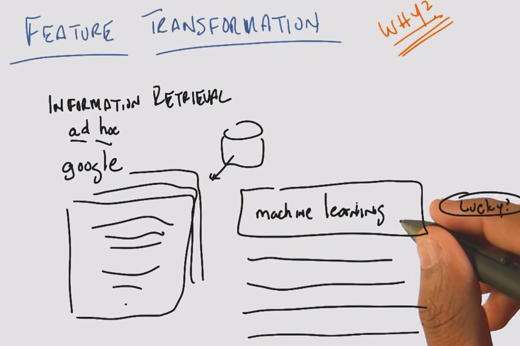 FEATURE TRANSFORMATION
WHY?
INFORMATION RETRIEVAL
ad hoc
google
machine learning
Lucky?